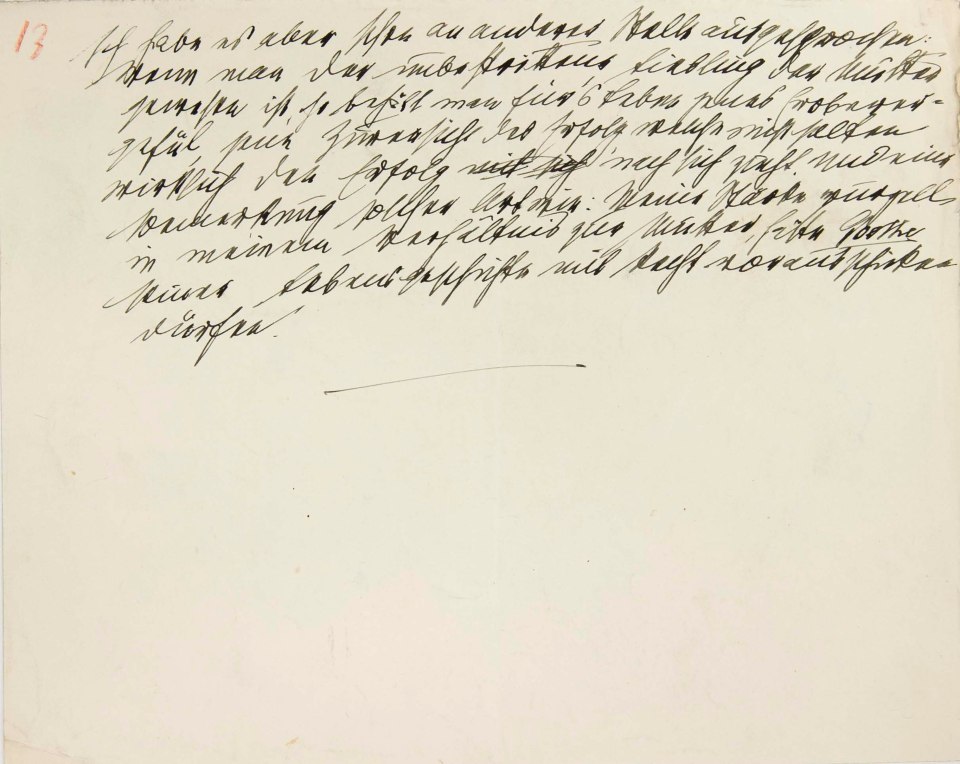 17
Ich habe es aber schon an anderer Stelle ausgesprochen:
Wenn man der unbestrittene Liebling der Mutter
gewesen ist, so behält man für's Leben jenes Eroberer-
gefühl, jene Zuversicht des Erfolgs welche nicht selten
wirklich den Erfolg mit sich nach sich zieht. Und eine
Bemerkung solcher Art wie: Meine Stärke wurzelt
in meinem Verhältnis zur Mutter, hätte Goethe
seiner Lebensgeschichte mit Recht vorausschicken
dürfen.